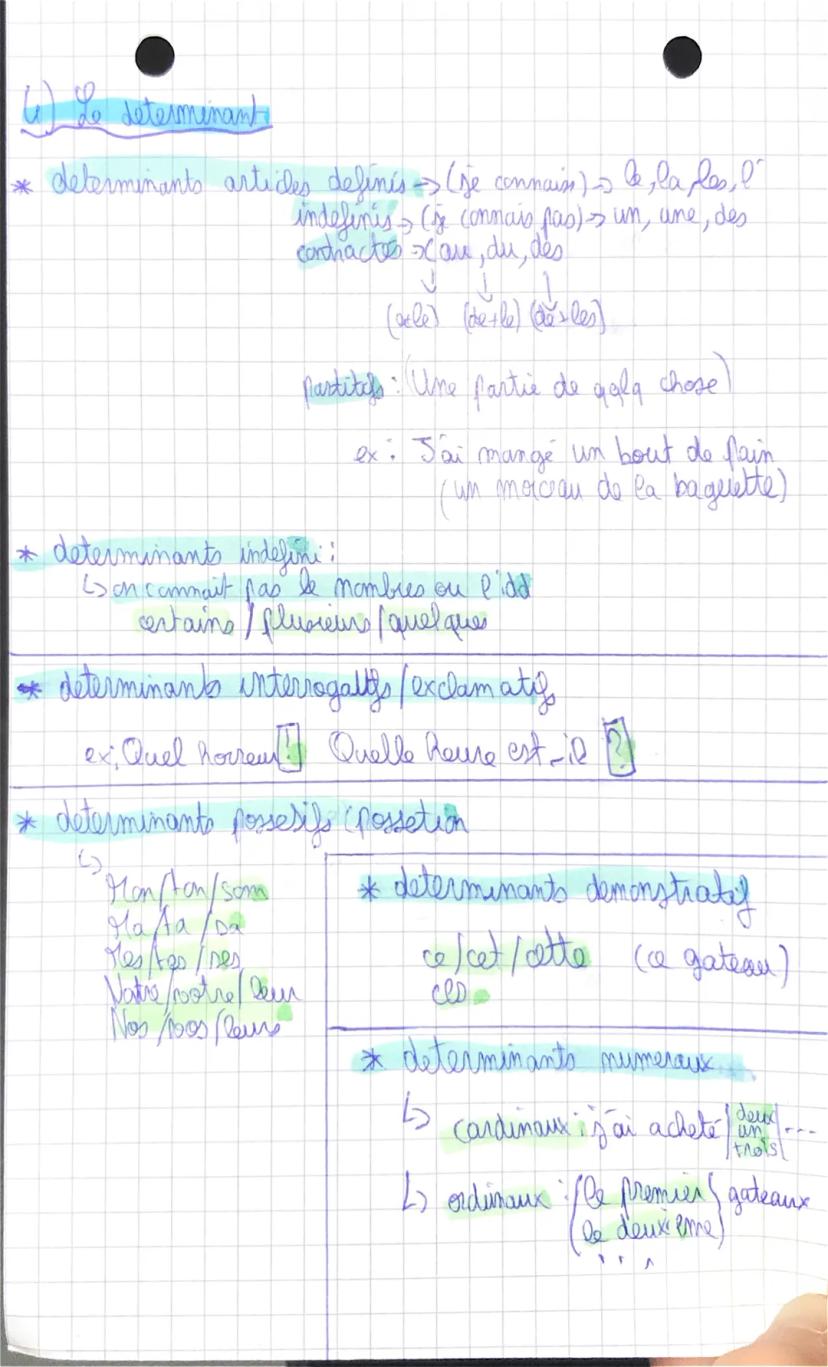 4) Le determinant
* determinants articles definis → (je connais) → le, la, les, l'
indefinis → (je connais pas) → un, une, des
contractés → (au, du, des
(a+le) (de+le) (de+les)
partitifs : (Une partie de qqlq chose)
ex : J'ai mangé un bout de pain
(un morceau de la baguette)
* determinants indefini :
↳ on connait pas le nombres ou l'idd
certains / plusieurs / quelques
* determinants interrogatifs / exclamatifs
ex : Quel horreur ! Quelle heure est-il ?
* determinants possesifs (possetion
↳
Mon/ton/son
Ma/ta/sa
Mes/tes/ses
Notre/votre/leur
Nos/vos/leurs
* determinants demonstratif
ce/cet/cette (ce gateau)
ces
* determinants numeraux
↳ cardinaux : j'ai acheté deux
un ...
trois
↳ ordinaux : (le premier } gateaux
(le deuxieme)
...